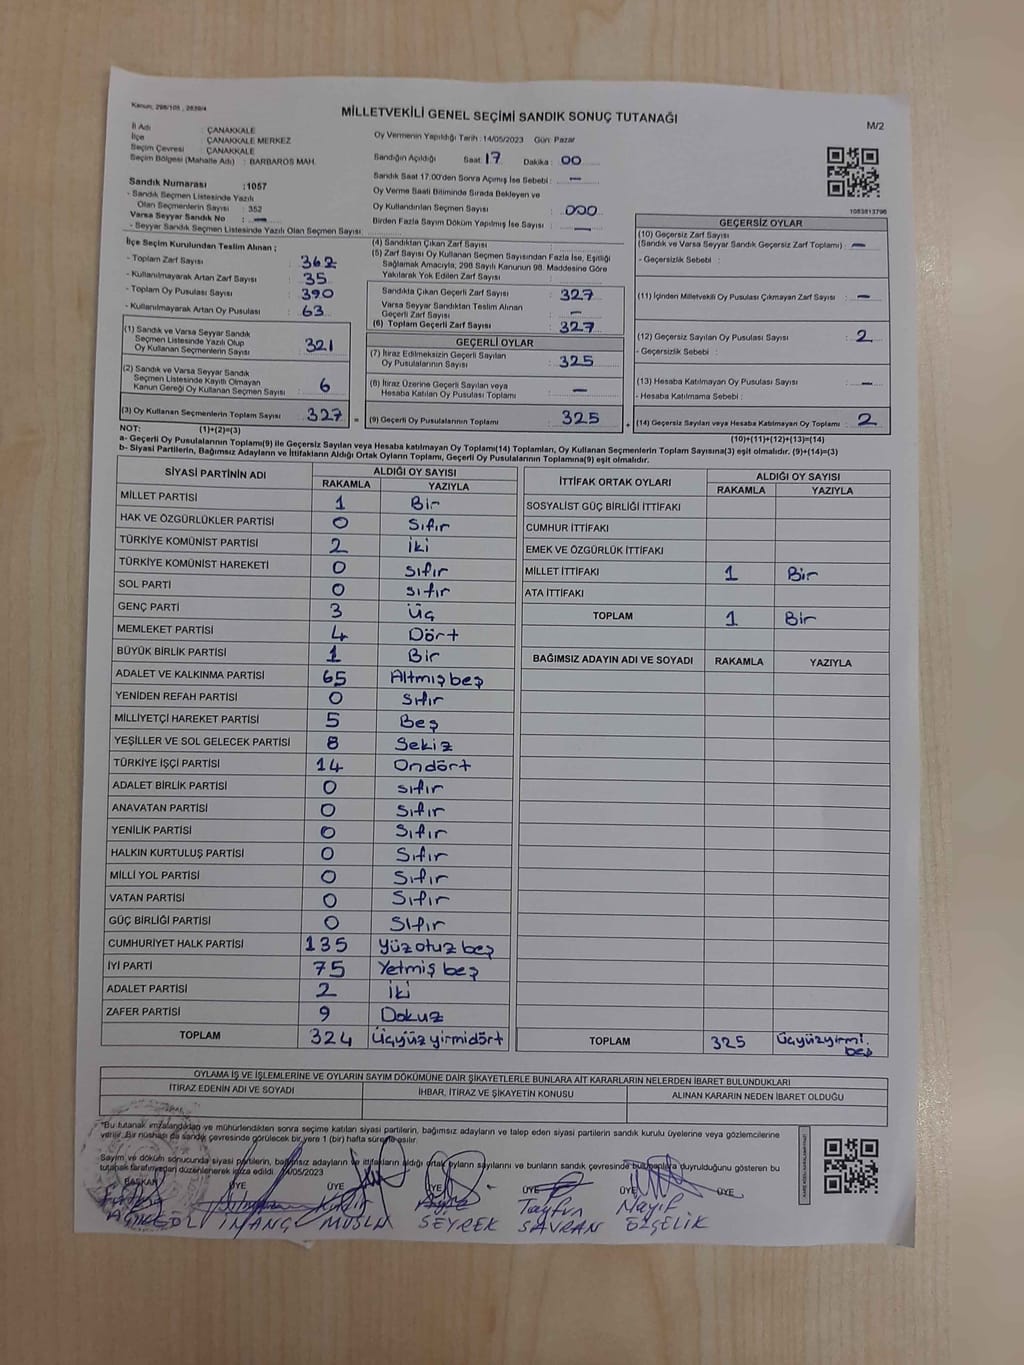 Kanun: 298/105 , 2839/4
MİLLETVEKİLİ GENEL SEÇİMİ SANDIK SONUÇ TUTANAĞI
M/2
İl Adı : ÇANAKKALE
İlçe : ÇANAKKALE MERKEZ
Seçim Çevresi : ÇANAKKALE
Seçim Bölgesi (Mahalle Adı) : BARBAROS MAH.
Oy Vermenin Yapıldığı Tarih : 14/05/2023 Gün: Pazar
Sandığın Açıldığı Saat : 17 Dakika : 00
Sandık Saat 17.00'den Sonra Açılmış İse Sebebi : —
Oy Verme Saati Bitiminde Sırada Bekleyen ve
Oy Kullandırılan Seçmen Sayısı : 000
Birden Fazla Sayım Döküm Yapılmış İse Sayısı : —
1083813796
Sandık Numarası : 1057
- Sandık Seçmen Listesinde Yazılı
Olan Seçmenlerin Sayısı : 352
Varsa Seyyar Sandık No : —
- Seyyar Sandık Seçmen Listesinde Yazılı Olan Seçmen Sayısı :
İlçe Seçim Kurulundan Teslim Alınan ;
- Toplam Zarf Sayısı : 362
- Kullanılmayarak Artan Zarf Sayısı : 35
- Toplam Oy Pusulası Sayısı : 390
- Kullanılmayarak Artan Oy Pusulası : 63
(1) Sandık ve Varsa Seyyar Sandık
Seçmen Listesinde Yazılı Olup
Oy Kullanan Seçmenlerin Sayısı : 321
(2) Sandık ve Varsa Seyyar Sandık
Seçmen Listesinde Kayıtlı Olmayan
Kanun Gereği Oy Kullanan Seçmen Sayısı : 6
(3) Oy Kullanan Seçmenlerin Toplam Sayısı : 327 =
(4) Sandıktan Çıkan Zarf Sayısı :
(5) Zarf Sayısı Oy Kullanan Seçmen Sayısından Fazla İse, Eşitliği
Sağlamak Amacıyla; 298 Sayılı Kanunun 98. Maddesine Göre
Yakılarak Yok Edilen Zarf Sayısı :
Sandıkta Çıkan Geçerli Zarf Sayısı : 327
Varsa Seyyar Sandıktan Teslim Alınan
Geçerli Zarf Sayısı : —
(6) Toplam Geçerli Zarf Sayısı : 327
GEÇERLİ OYLAR
(7) İtiraz Edilmeksizin Geçerli Sayılan
Oy Pusulalarının Sayısı : 325
(8) İtiraz Üzerine Geçerli Sayılan veya
Hesaba Katılan Oy Pusulası Toplamı : —
(9) Geçerli Oy Pusulalarının Toplamı : 325 +
GEÇERSİZ OYLAR
(10) Geçersiz Zarf Sayısı
(Sandık ve Varsa Seyyar Sandık Geçersiz Zarf Toplamı) : —
- Geçersizlik Sebebi :
(11) İçinden Milletvekili Oy Pusulası Çıkmayan Zarf Sayısı : —
(12) Geçersiz Sayılan Oy Pusulası Sayısı : 2
- Geçersizlik Sebebi :
(13) Hesaba Katılmayan Oy Pusulası Sayısı : —
- Hesaba Katılmama Sebebi :
(14) Geçersiz Sayılan veya Hesaba Katılmayan Oy Toplamı : 2
NOT: (1)+(2)=(3) (10)+(11)+(12)+(13)=(14)
a- Geçerli Oy Pusulalarının Toplamı(9) ile Geçersiz Sayılan veya Hesaba katılmayan Oy Toplamı(14) Toplamları, Oy Kullanan Seçmenlerin Toplam Sayısına(3) eşit olmalıdır. (9)+(14)=(3)
b- Siyasi Partilerin, Bağımsız Adayların ve İttifakların Aldığı Ortak Oyların Toplamı, Geçerli Oy Pusulalarının Toplamına(9) eşit olmalıdır.
SİYASİ PARTİNİN ADI ALDIĞI OY SAYISI
RAKAMLA YAZIYLA
MİLLET PARTİSİ 1 Bir
HAK VE ÖZGÜRLÜKLER PARTİSİ 0 Sıfır
TÜRKİYE KOMÜNİST PARTİSİ 2 İki
TÜRKİYE KOMÜNİST HAREKETİ 0 Sıfır
SOL PARTİ 0 Sıfır
GENÇ PARTİ 3 Üç
MEMLEKET PARTİSİ 4 Dört
BÜYÜK BİRLİK PARTİSİ 1 Bir
ADALET VE KALKINMA PARTİSİ 65 Altmış beş
YENİDEN REFAH PARTİSİ 0 Sıfır
MİLLİYETÇİ HAREKET PARTİSİ 5 Beş
YEŞİLLER VE SOL GELECEK PARTİSİ 8 Sekiz
TÜRKİYE İŞÇİ PARTİSİ 14 Ondört
ADALET BİRLİK PARTİSİ 0 Sıfır
ANAVATAN PARTİSİ 0 Sıfır
YENİLİK PARTİSİ 0 Sıfır
HALKIN KURTULUŞ PARTİSİ 0 Sıfır
MİLLİ YOL PARTİSİ 0 Sıfır
VATAN PARTİSİ 0 Sıfır
GÜÇ BİRLİĞİ PARTİSİ 0 Sıfır
CUMHURİYET HALK PARTİSİ 135 Yüz otuz beş
İYİ PARTİ 75 Yetmiş beş
ADALET PARTİSİ 2 İki
ZAFER PARTİSİ 9 Dokuz
TOPLAM 324 Üçyüz yirmidört
İTTİFAK ORTAK OYLARI ALDIĞI OY SAYISI
RAKAMLA YAZIYLA
SOSYALİST GÜÇ BİRLİĞİ İTTİFAKI
CUMHUR İTTİFAKI
EMEK VE ÖZGÜRLÜK İTTİFAKI
MİLLET İTTİFAKI 1 Bir
ATA İTTİFAKI
TOPLAM 1 Bir
BAĞIMSIZ ADAYIN ADI VE SOYADI RAKAMLA YAZIYLA
TOPLAM 325 Üçyüzyirmi
beş
OYLAMA İŞ VE İŞLEMLERİNE VE OYLARIN SAYIM DÖKÜMÜNE DAİR ŞİKAYETLERLE BUNLARA AİT KARARLARIN NELERDEN İBARET BULUNDUKLARI
İTİRAZ EDENİN ADI VE SOYADI İHBAR, İTİRAZ VE ŞİKAYETİN KONUSU ALINAN KARARIN NEDEN İBARET OLDUĞU
*Bu tutanak imzalandıktan ve mühürlendikten sonra seçime katılan siyasi partilerin, bağımsız adayların ve talep eden siyasi partilerin sandık kurulu üyelerine veya gözlemcilerine
verilir. Bir nüshası da sandık çevresinde görülecek bir yere 1 (bir) hafta süreyle asılır.
Sayım ve döküm sonucunda siyasi partilerin, bağımsız adayların ve ittifakların aldığı ortak oyların sayılarını ve bunların sandık çevresinde bulunanlara duyrulduğunu gösteren bu
tutanak tarafımızdan düzenlenerek imza edildi. 14/05/2023
BAŞKAN ÜYE ÜYE ÜYE ÜYE ÜYE ÜYE
Tayfun Nayif
AÇIKGÖL İNANÇ MUSLU SEYREK SAVRAN ÖZÇELİK